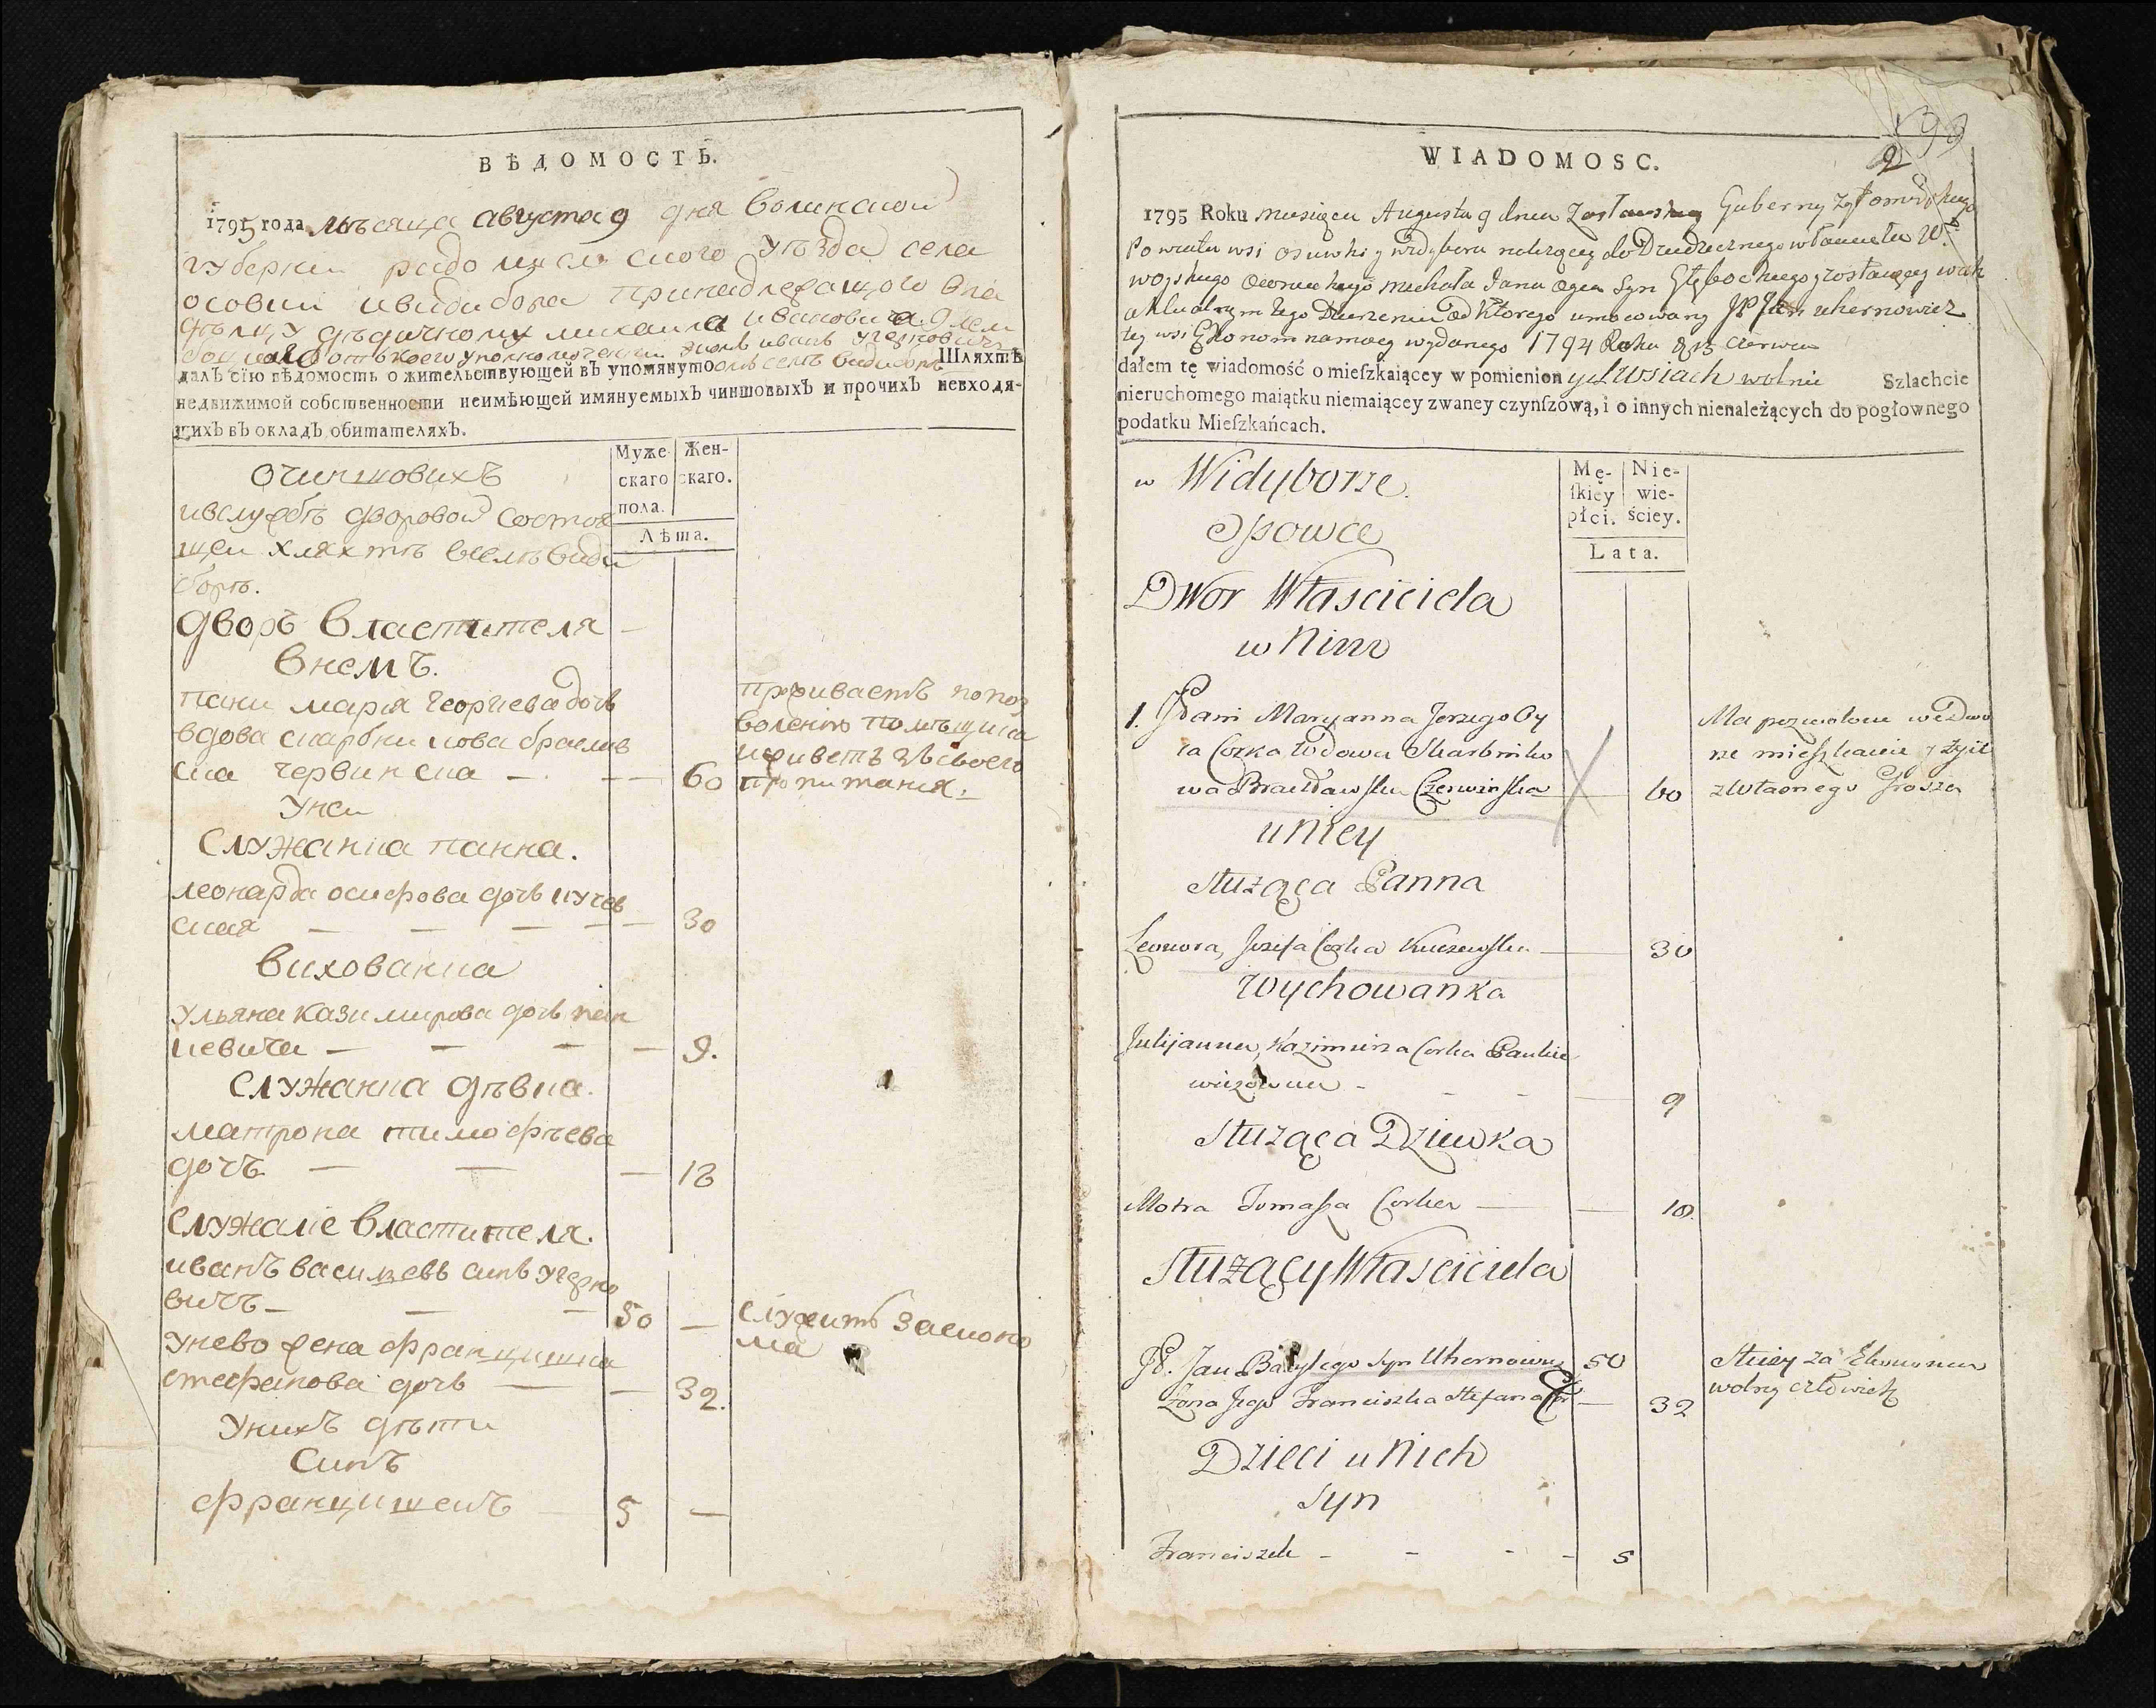 ВѢДОМОСТЬ.
1795 года мѣсяца августа 9 дня Волинской
губернии радомисльского уѣзда села
осовки ивидибора принадлежащого вла
дѣлцу дѣдичному михаила ивановича
отъ коего уполномоченни иванъ Угерновичъ
далъ сїю вѣдомость о жительствующей въ упомянуто Шляхтѣ
недвижимой собственности неимѣющей имянуемыхъ чиншовыхъ и прочихъ невходя-
щихъ въ окладъ обитателяхъ.
Муже Жен-
скаго скаго.
пола.
Лѣта.
Очиншовихъ
ивслужбѣ дворовой состоя
щей хляхтѣ вселѣ види
борѣ.
дворъ властителя —
внемъ.
пани мария георгиева дочь
вдова скарбникова браслав
ска червинска — — 60
проживаетъ попоз
волению помѣщика
иживетъ зъсвоего
пропитания.
Унеи
Служанка панна.
леонарда осифова дочь кучев
ская — — — — 30
вихованка
ульяна казимирова дочь пан
кевича — — — — 9.
Служанка дѣвка.
матрона тимофѣева
дочъ — — — 18
Служаще властителя.
иванъ василевъ синъ Угерно
вичъ — — — 50 —
служитъ заеконо
ма
Унево жена францишка
стефанова дочь — — 32.
Унихъ дѣти
Синъ
францишекъ 5 —
WIADOMOSC.
2
1795 Roku miesiąca Augusta 9 dnia Zasławskiey Guberny Zytomirskiego
Powiatu wsi osuwki y widybora należącey do Dziedzicznego
woyskiego Owruckiego Michała Jana Syn Głębockiego zostaiącey
aktualnym Iego Dzierzeniu od ktorego umocowany JP Jan uhernowicz
tey wsi Ekonom namocy wydaney 1794 Roku 15 czerwca
dałem tę wiadomość o mieſzkaiącey w pomienion ych wsiach wolnie Szlachcie
nieruchomego maiątku niemaiącey zwaney czynſzową, i o innych nienależących do pogłownego
podatku Mieſzkańcach.
Mę- Nie-
ſkiey wie-
płci. ściey.
Lata.
w Widyborze.
Opowce
Dwor Własciciela
w Nim
1. JPani Maryanna Jerzego By
ła Corka Wdowa Skarbniko
wa Bracławska Czerwinska — 60
Ma pozwolone we Dwo
rze mieszkanie y żyie
z Własnego Grosza
u Niey
służąca Panna
Leonora, Jozefa Corka Kuczewska — — 30
Wychowanka
Julijanna, Kazimirza Corka Pankie
wiczowna - - - — 9
służąca Dziewka
Motra Tomasza Corka — — 18.
służący Własciciela
JP. Jan Bazylego Syn Uhernowicz 50
Służy za Ekonoma
wolny człowiek
Żona Jego Franciszka Stefana Cor — 32
Dzieci u Nich
syn
Franciszek - - - - 5